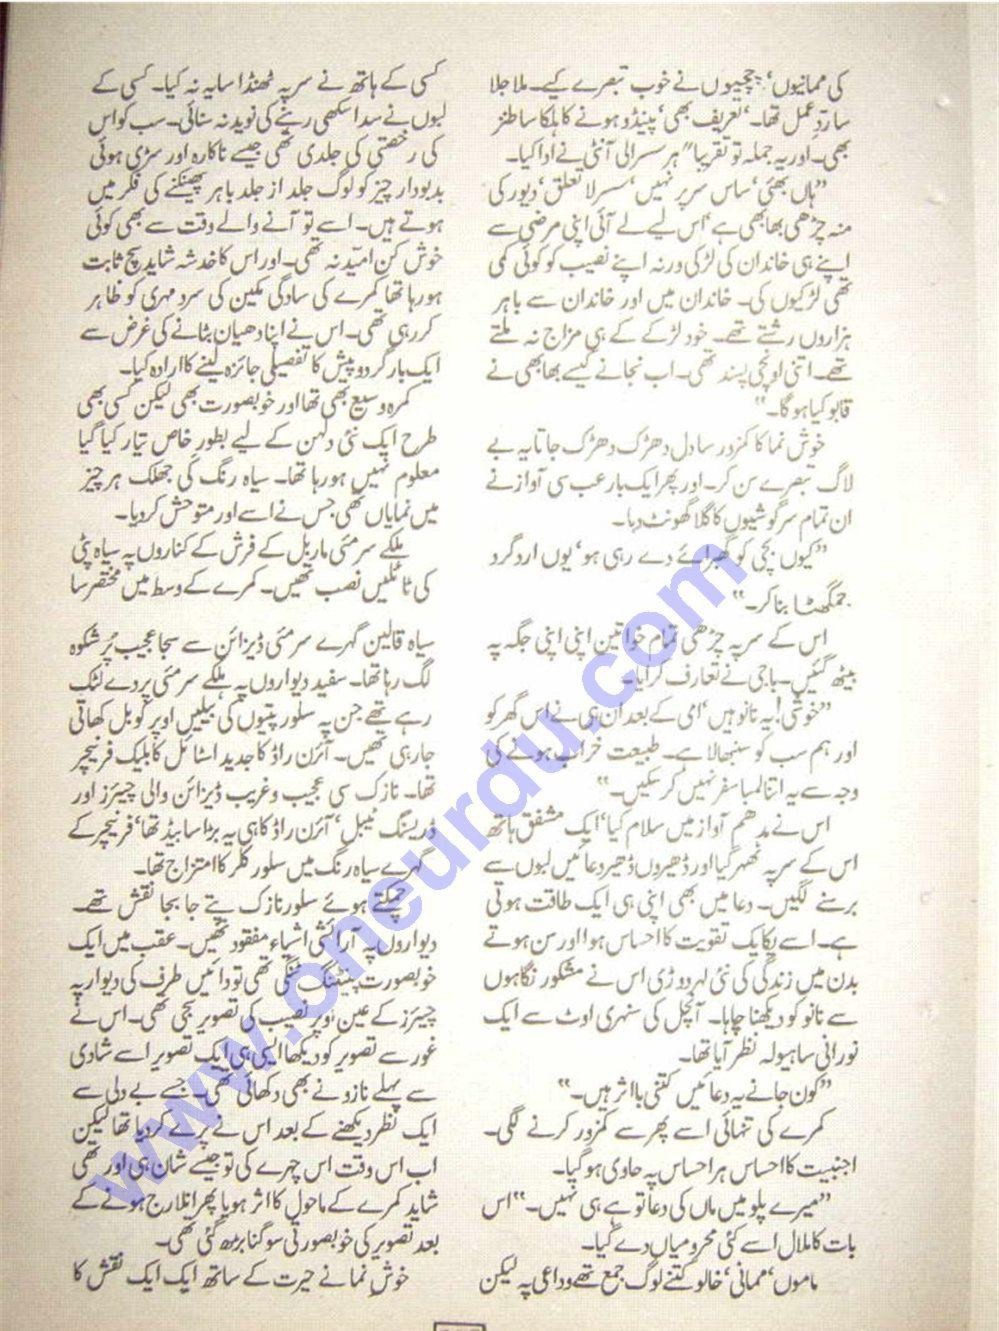 کی ممانیوں‘ چچیوں نے خوب تبصرے کیے۔ ملا جلا
سا ردِ عمل تھا۔ ’تعریف بھی‘ پینڈو ہونے کا ہلکا سا طنز
بھی۔ اور یہ جملہ تو تقریباً ہر سسرالی آنٹی نے ادا کیا۔
”ہاں بھئی‘ ساس سر پر نہیں‘ سسر لا تعلق‘ دیور کی
منہ چڑھی بھابھی ہے‘ اس لیے لے آئی اپنی مرضی سے
اپنے ہی خاندان کی لڑکی ورنہ اپنے نصیب کو کوئی کمی
تھی لڑکیوں کی۔ خاندان میں اور خاندان سے باہر
ہزاروں رشتے تھے۔ خود لڑکے کے ہی مزاج نہ ملتے
تھے۔ اتنی اونچی پسند تھی۔ اب نجانے کیسے بھابھی نے
قابو کیا ہو گا۔“
خوش نما کا کمزور سا دل دھڑک دھڑک جاتا یہ بے
لاگ تبصرے سن کر۔ اور پھر ایک بارعب سی آواز نے
ان تمام سرگوشیوں کا گلا گھونٹ دیا۔
”کیوں بچی کو گھبرائے دے رہی ہو‘ یوں ارد گرد
جمگھٹا بنا کر۔“
اس کے سر پہ چڑھی تمام خواتین اپنی اپنی جگہ پہ
بیٹھ گئیں۔ باجی نے تعارف کرایا۔
”خوشی! یہ نانو ہیں‘ امی کے بعد ان ہی نے اس گھر کو
اور ہم سب کو سنبھالا ہے۔ طبیعت خراب ہونے کی
وجہ سے یہ اتنا لمبا سفر نہیں کر سکیں۔“
اس نے مدھم آواز میں سلام کیا‘ ایک مشفق ہاتھ
اس کے سر پہ ٹھہر گیا اور ڈھیروں ڈھیر دعائیں لبوں سے
برسنے لگیں۔ دعا میں بھی اپنی ہی ایک طاقت ہوتی
ہے۔ اسے یکایک تقویت کا احساس ہوا اور سن ہوتے
بدن میں زندگی کی نئی لہر دوڑی اس نے مشکور نگاہوں
سے نانو کو دیکھنا چاہا۔ آنچل کی سنہری اوٹ سے ایک
نورانی سا ہیولہ نظر آیا تھا۔
”کون جانے یہ دعائیں کتنی با اثر ہیں۔“
کمرے کی تنہائی اسے پھر سے کمزور کرنے لگی۔
اجنبیت کا احساس ہر احساس پہ حاوی ہو گیا۔
”میرے پلو میں ماں کی دعا تو ہے ہی نہیں۔“ اس
بات کا ملال اسے کئی محرومیاں دے گیا۔
ماموں‘ ممانی‘ خالو کتنے لوگ جمع تھے وداعی پہ لیکن
کسی کے ہاتھ نے سر پہ ٹھنڈا سایہ نہ کیا۔ کسی کے
لبوں نے سدا سکھی رہنے کی نوید نہ سنائی۔ سب کو اس
کی رخصتی کی جلدی تھی جیسے ناکارہ اور سڑی ہوئی
بدبودار چیز کو لوگ جلد از جلد باہر پھینکنے کی فکر میں
ہوتے ہیں۔ اسے تو آنے والے وقت سے بھی کوئی
خوش کن امید نہ تھی۔ اور اس کا خدشہ شاید سچ ثابت
ہو رہا تھا کمرے کی سادگی مکین کی سرد مہری کو ظاہر
کر رہی تھی۔ اس نے اپنا دھیان بٹانے کی غرض سے
ایک بار گرد و پیش کا تفصیلی جائزہ لینے کا ارادہ کیا۔
کمرہ وسیع بھی تھا اور خوبصورت بھی لیکن کسی بھی
طرح ایک نئی دلہن کے لیے بطورِ خاص تیار کیا گیا
معلوم نہیں ہو رہا تھا۔ سیاہ رنگ کی جھلک ہر چیز
میں نمایاں تھی جس نے اسے اور متوحش کر دیا۔
ہلکے سرمئی ماربل کے فرش کے کناروں پہ سیاہ پٹی
کی ٹائلیں نصب تھیں۔ کمرے کے وسط میں مختصر سا
سیاہ قالین گہرے سرمئی ڈیزائن سے سجا عجیب پُرشکوہ
لگ رہا تھا۔ سفید دیواروں پہ ہلکے سرمئی پردے لٹک
رہے تھے جن پہ سلور پتیوں کی بیلیں اوپر کو بل کھاتی
جا رہی تھیں۔ آئرن راڈ کا جدید اسٹائل کا بلیک فرنیچر
تھا۔ نازک سی عجیب و غریب ڈیزائن والی چیئرز اور
ڈریسنگ ٹیبل‘ آئرن راڈ کا ہی یہ بڑا سا بیڈ تھا‘ فرنیچر کے
گہرے سیاہ رنگ میں سلور کلر کا امتزاج تھا۔
چمکتے ہوئے سلور نازک پتے جا بجا نقش تھے۔
دیواروں پہ آرائشی اشیاء مفقود تھیں۔ عقب میں ایک
خوبصورت پینٹنگ ٹنگی تھی تو دائیں طرف کی دیوار پہ
چیئرز کے عین اوپر نصیب کی تصویر سجی تھی۔ اس نے
غور سے تصویر کو دیکھا ایسی ہی ایک تصویر اسے شادی
سے پہلے نازو نے بھی دکھائی تھی۔ جسے بے دلی سے
ایک نظر دیکھنے کے بعد اس نے پرے کر دیا تھا لیکن
اب اس وقت اس چہرے کی تو جیسے شان ہی اور تھی
شاید کمرے کے ماحول کا اثر ہو یا پھر انلارج ہونے کے
بعد تصویر کی خوبصورتی سو گنا بڑھ گئی تھی۔
خوش نما نے حیرت کے ساتھ ایک ایک نقش کا
www.oneurdu.com